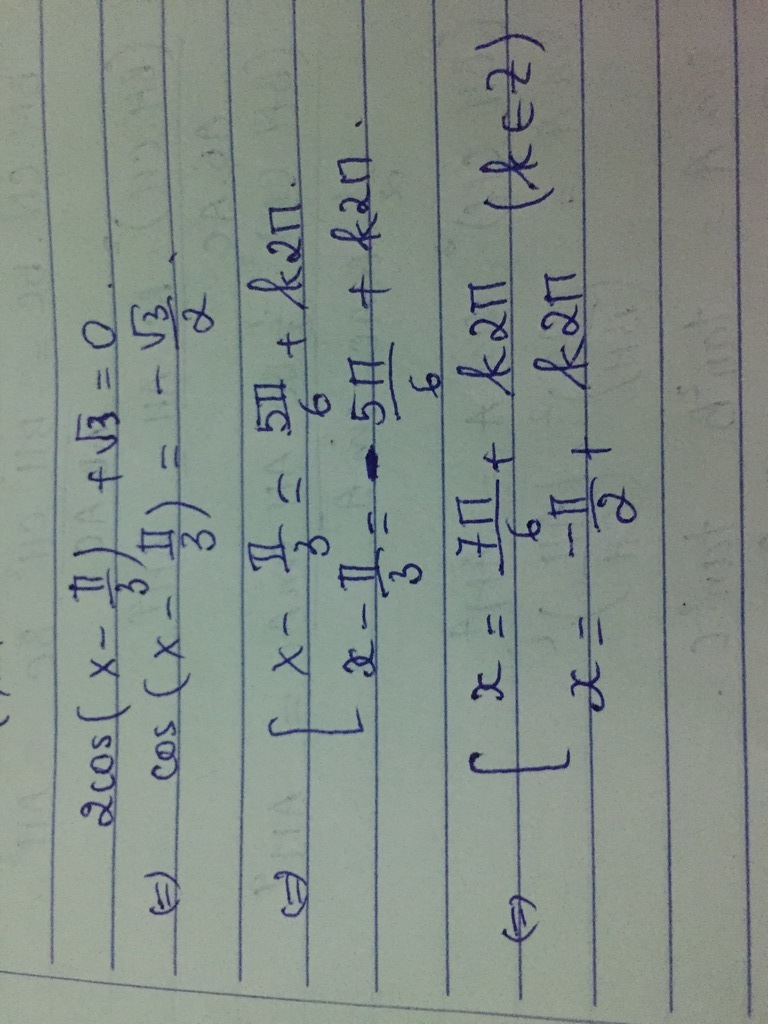 2cos(x - π/3) + √3 = 0.
(=) cos(x - π/3) = -√3/2.
(=) [ x - π/3 = 5π/6 + k2π.
x - π/3 = -5π/6 + k2π.
(=) [ x = 7π/6 + k2π (k ∈ Z)
x = -π/2 + k2π